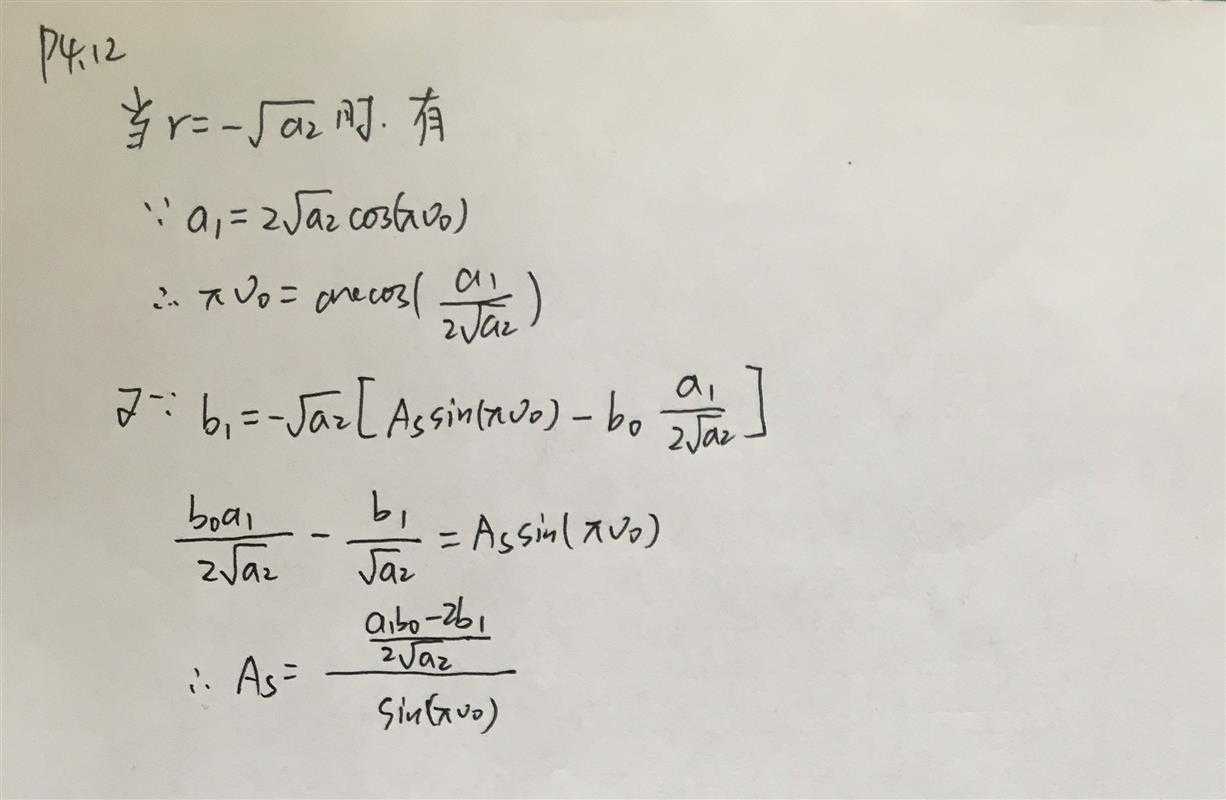 P4.12
当 r = -√a₂ 时. 有
∵ a₁ = 2√a₂ cos(πν₀)
∴ πν₀ = arccos( a₁ / 2√a₂ )
又∵ b₁ = -√a₂ [ Aₛ sin(πν₀) - b₀ a₁ / 2√a₂ ]
b₀a₁ / 2√a₂ - b₁ / √a₂ = Aₛ sin(πν₀)
∴ Aₛ = ((a₁b₀ - 2b₁) / 2√a₂) / sin(πν₀)